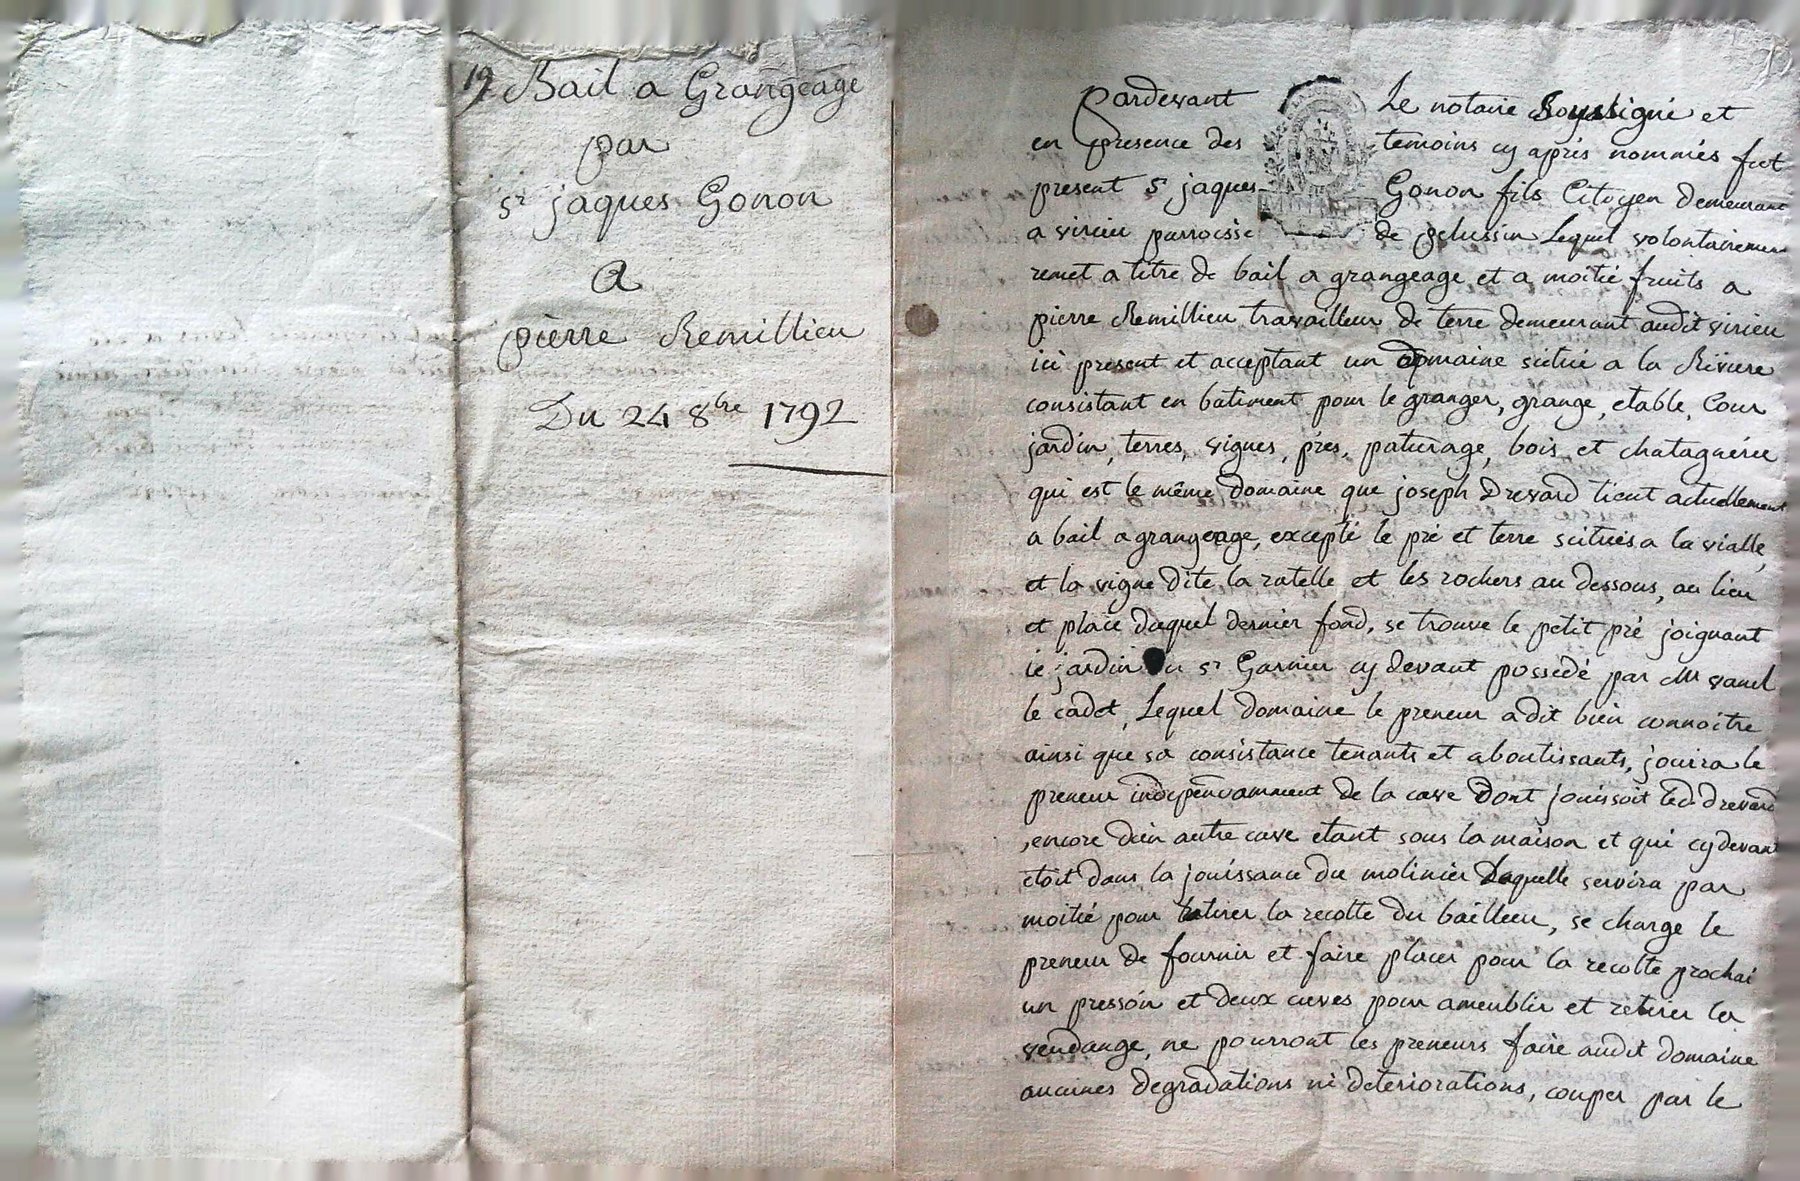 19 Bail a Grangeage
par
sr jaques Gonon
A
pierre Remillieu
Du 24 8bre 1792
Pardevant Le notaire Soussigné et
en presence des temoins cy après nommés fut
present sr jaques Gonon fils Citoyen demeurant
a virieu parroisse de pelussin Lequel volontairement
remet a titre de bail a grangeage et a moitié fruits a
pierre Remillieu travailleur de terre demeurant audit virieu
ici present et acceptant un domaine scitué a la Riviere
consistant en batiment pour le granger, grange, etable, Cour
jardin, terres, vignes, prés, paturage, bois et chatagnérée
qui est le même domaine que joseph Drevard tient actuellement
a bail a grangeage, excepté le pré et terre scitués a la vialle,
et la vigne dite la ratelle et les rochers au dessous, au lieu
et place duquel dernier fond, se trouve le petit pré joignant
le jardin du sr Garnier cy devant possedé par Mr vanel
le cadet, Lequel domaine le preneur a dit bien connoitre
ainsi que sa consistance tenants et aboutissants, jouira le
preneur indépendamment de la cave dont jouissoit led. drevard
, encore d'un autre cave etant sous la maison et qui cy devant
étoit dans la jouissance du molinier Laquelle servira par
moitié pour retirer la recolte du bailleur, se charge le
preneur de fournir et faire placer pour la recolte prochai
un pressoir et deux cuves pour ameublir et retirer la
vendange, ne pourront les preneurs faire audit domaine
aucunes degradations ni deteriorations, couper par le